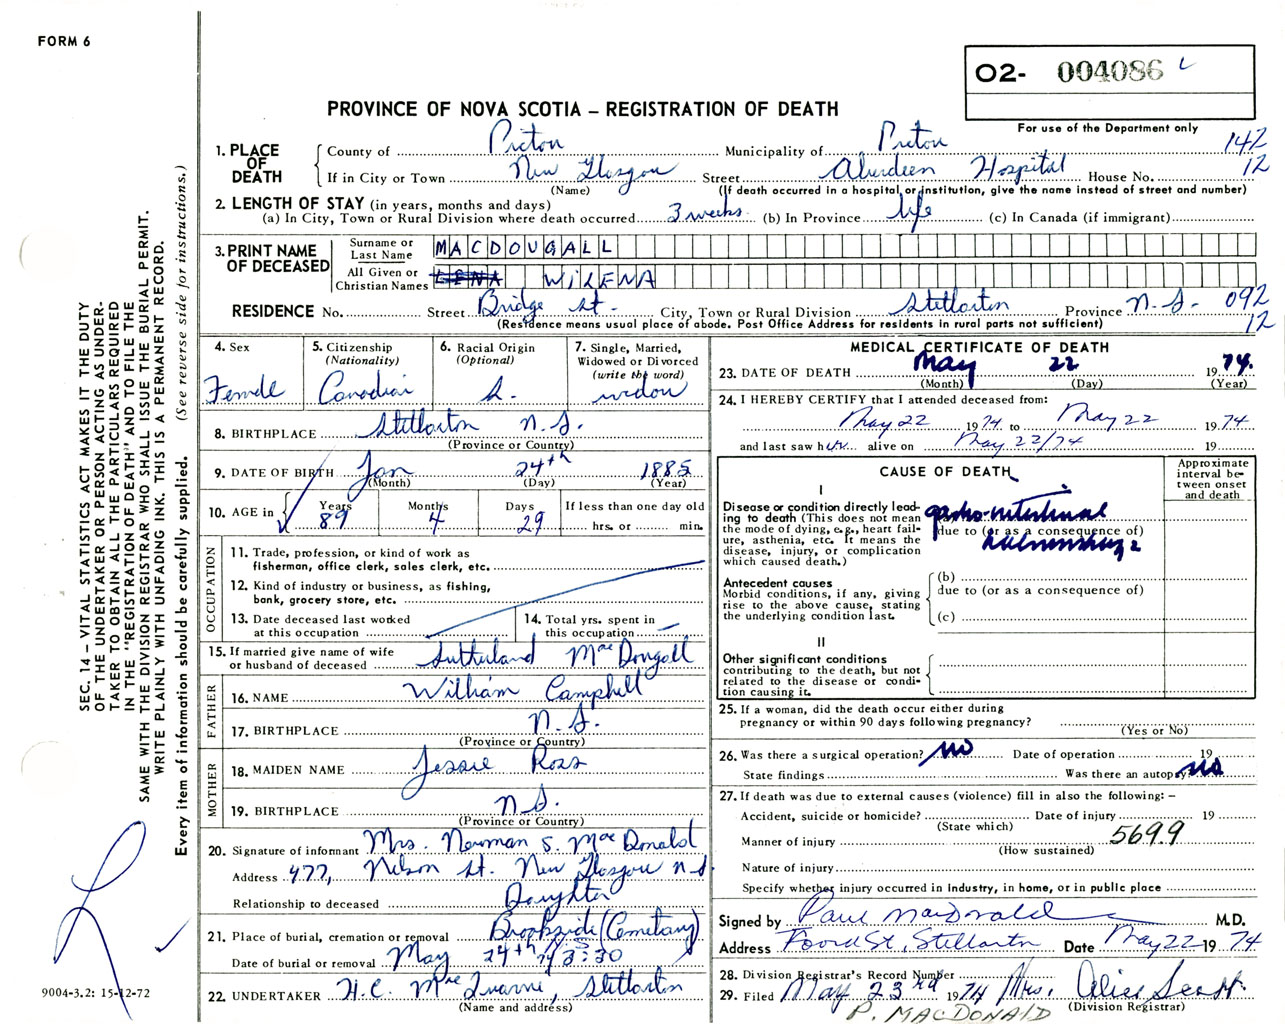 FORM 6
O2- 004086
For use of the Department only
PROVINCE OF NOVA SCOTIA – REGISTRATION OF DEATH
1. PLACE OF DEATH
County of Pictou Municipality of Pictou 142
If in City or Town New Glasgow Street Aberdeen Hospital House No. 12
(Name) (If death occurred in a hospital or institution, give the name instead of street and number)
2. LENGTH OF STAY (in years, months and days)
(a) In City, Town or Rural Division where death occurred 3 weeks (b) In Province life (c) In Canada (if immigrant)
3. PRINT NAME OF DECEASED
Surname or Last Name MACDOUGALL
All Given or Christian Names LENA WILENA
RESIDENCE No. Street Bridge St. City, Town or Rural Division Stellarton Province N.S. 092
(Residence means usual place of abode. Post Office Address for residents in rural parts not sufficient) 12
4. Sex
Female
5. Citizenship
(Nationality)
Canadian
6. Racial Origin
(Optional)
7. Single, Married,
Widowed or Divorced
(write the word)
widow
8. BIRTHPLACE Stellarton N.S.
(Province or Country)
9. DATE OF BIRTH Jan 24th 1885
(Month) (Day) (Year)
10. AGE in
Years 89 Months 4 Days 29
If less than one day old
hrs. or min.
OCCUPATION
11. Trade, profession, or kind of work as
fisherman, office clerk, sales clerk, etc.
12. Kind of industry or business, as fishing,
bank, grocery store, etc.
13. Date deceased last worked
at this occupation
14. Total yrs. spent in
this occupation
15. If married give name of wife
or husband of deceased Sutherland MacDougall
FATHER
16. NAME William Campbell
17. BIRTHPLACE N.S.
(Province or Country)
MOTHER
18. MAIDEN NAME Jessie Ross
19. BIRTHPLACE N.S.
(Province or Country)
20. Signature of informant Mrs. Newman S. MacDonald
Address 477, Nelson St. New Glasgow N.S.
Relationship to deceased Daughter
21. Place of burial, cremation or removal Brookside (Cemetary)
Date of burial or removal May 24th 3:30
22. UNDERTAKER H.C. Stellarton
(Name and address)
MEDICAL CERTIFICATE OF DEATH
23. DATE OF DEATH May 22 1974.
(Month) (Day) (Year)
24. I HEREBY CERTIFY that I attended deceased from:
May 22 1974 to May 22 1974
and last saw her alive on May 22/74 19
CAUSE OF DEATH
Approximate
interval be-
tween onset
and death
I
Disease or condition directly lead-
ing to death (This does not mean
the mode of dying, e.g., heart fail-
ure, asthenia, etc. It means the
disease, injury, or complication
which caused death.)
(a) gastro-intestinal
due to (or as a consequence of)
Antecedent causes
Morbid conditions, if any, giving
rise to the above cause, stating
the underlying condition last.
(b)
due to (or as a consequence of)
(c)
II
Other significant conditions
contributing to the death, but not
related to the disease or condi-
tion causing it.
25. If a woman, did the death occur either during
pregnancy or within 90 days following pregnancy?
(Yes or No)
26. Was there a surgical operation? no Date of operation 19
State findings Was there an autopsy? no
27. If death was due to external causes (violence) fill in also the following: –
Accident, suicide or homicide? Date of injury 19
(State which)
Manner of injury 5699
(How sustained)
Nature of injury
Specify whether injury occurred in Industry, in home, or in public place
Signed by Paul MacDonald M.D.
Address Foord St, Stellarton Date May 22 1974
28. Division Registrar's Record Number
29. Filed May 23rd 1974 Mrs. Alice Scott
(Division Registrar)
P. MACDONALD
SEC. 14 – VITAL STATISTICS ACT MAKES IT THE DUTY
OF THE UNDERTAKER OR PERSON ACTING AS UNDER-
TAKER TO OBTAIN ALL THE PARTICULARS REQUIRED
IN THE "REGISTRATION OF DEATH" AND TO FILE THE
SAME WITH THE DIVISION REGISTRAR WHO SHALL ISSUE THE BURIAL PERMIT.
WRITE PLAINLY WITH UNFADING INK. THIS IS A PERMANENT RECORD.
Every item of information should be carefully supplied. (See reverse side for instructions.)
9004-3.2: 15-12-72